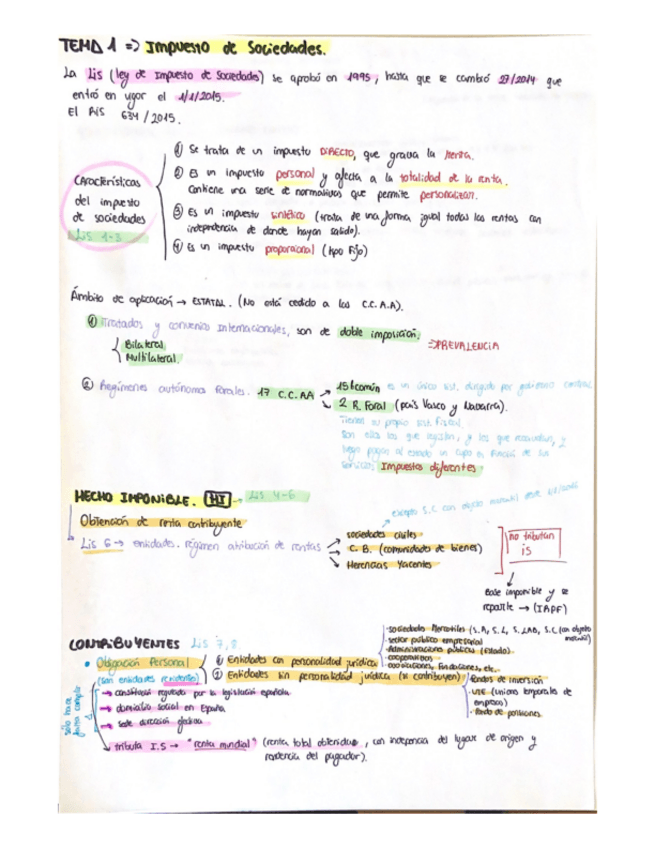 TEMA 1 => Impuesto de Sociedades.
La Lis (ley de Impuesto de Sociedades) se aprobó en 1995, hasta que se cambió 27/2014 que
entró en vigor el 1/1/2015.
El RIS 634/2015.
Características
del impuesto
de sociedades
LIS 1-3
① Se trata de un impuesto DIRECTO, que grava la renta.
② Es un impuesto personal y afecta a la totalidad de la renta.
Contiene una serie de normativas que permite personalizar.
③ Es un impuesto sintético (trata de una forma igual todas las rentas con
independencia de donde hayan salido).
④ Es un impuesto proporcional (tipo Fijo)
Ámbito de aplicación → ESTATAL. (No está cedido a las C.C.A.A).
① Tratados y convenios Internacionales, son de doble imposición.
Bilateral
Multilateral.
=> PREVALENCIA
② Regímenes autónomos forales. 17 C.C.AA → 15 R común es un único sist. dirigido por gobierno central
↳ 2 R. Foral (país Vasco y Navarra).
Tienen su propio sist. fiscal.
Son ellos los que legislan, y los que recaudan, y
luego pagan al estado un cupo en función de sus
servicios. Impuestos diferentes.
HECHO IMPONIBLE. (HI) → LIS 4-6
Obtención de renta contribuyente
Lis 6 → entidades. régimen atribución de rentas
excepto S.C con objeto mercantil desde 1/1/2016
→ sociedades civiles
→ C.B. (comunidades de bienes)
→ Herencias Yacentes
no tributan
IS
Base imponible y se
reparte → (IRPF)
CONTRIBUYENTES Lis 7,8
• Obligación Personal
(son entidades residentes)
① Entidades con personalidad jurídica
-sociedades Mercantiles (S.A, S.L, S.LAB, S.C (con objeto
mercantil)
-sector público empresarial
-Administraciones públicas (Estado).
-cooperativas
-asociaciones, fundaciones, etc.
② Entidades sin personalidad jurídica (sí contribuyen)
-Fondos de inversión
-UTE (uniones temporales de
empresas)
-Fondo de pensiones.
sólo hace
falta cumplir
1
→ constitución regulada por la legislación española.
→ domicilio social en España.
→ sede dirección efectiva
→ tributa I.S → "renta mundial" (renta total obtenida, con indepencia del lugar de origen y
residencia del pagador).